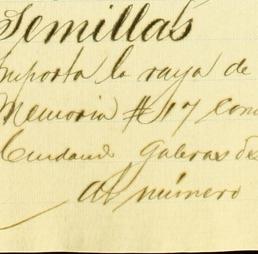 Semillas
Importa la raya de
Memoria # 17 con
Cuidando galeras de
al número